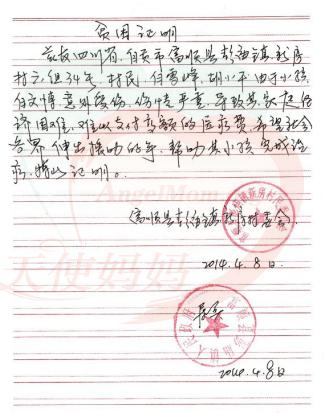 贫困证明
兹有四川省自贡市富顺县彭庙镇新房
村六组34号村民,任雪峰、胡小平由于小孩
任文博意外受伤,伤情严重,导致其家庭经
济困难,难以支付高额的医疗费,希望社会
各界伸出援助的手,帮助其小孩完成治
疗,特此证明。
AngelMom
天使妈妈
富顺县彭庙镇新房村民委会
2014.4.8日
属实
2014.4.8日